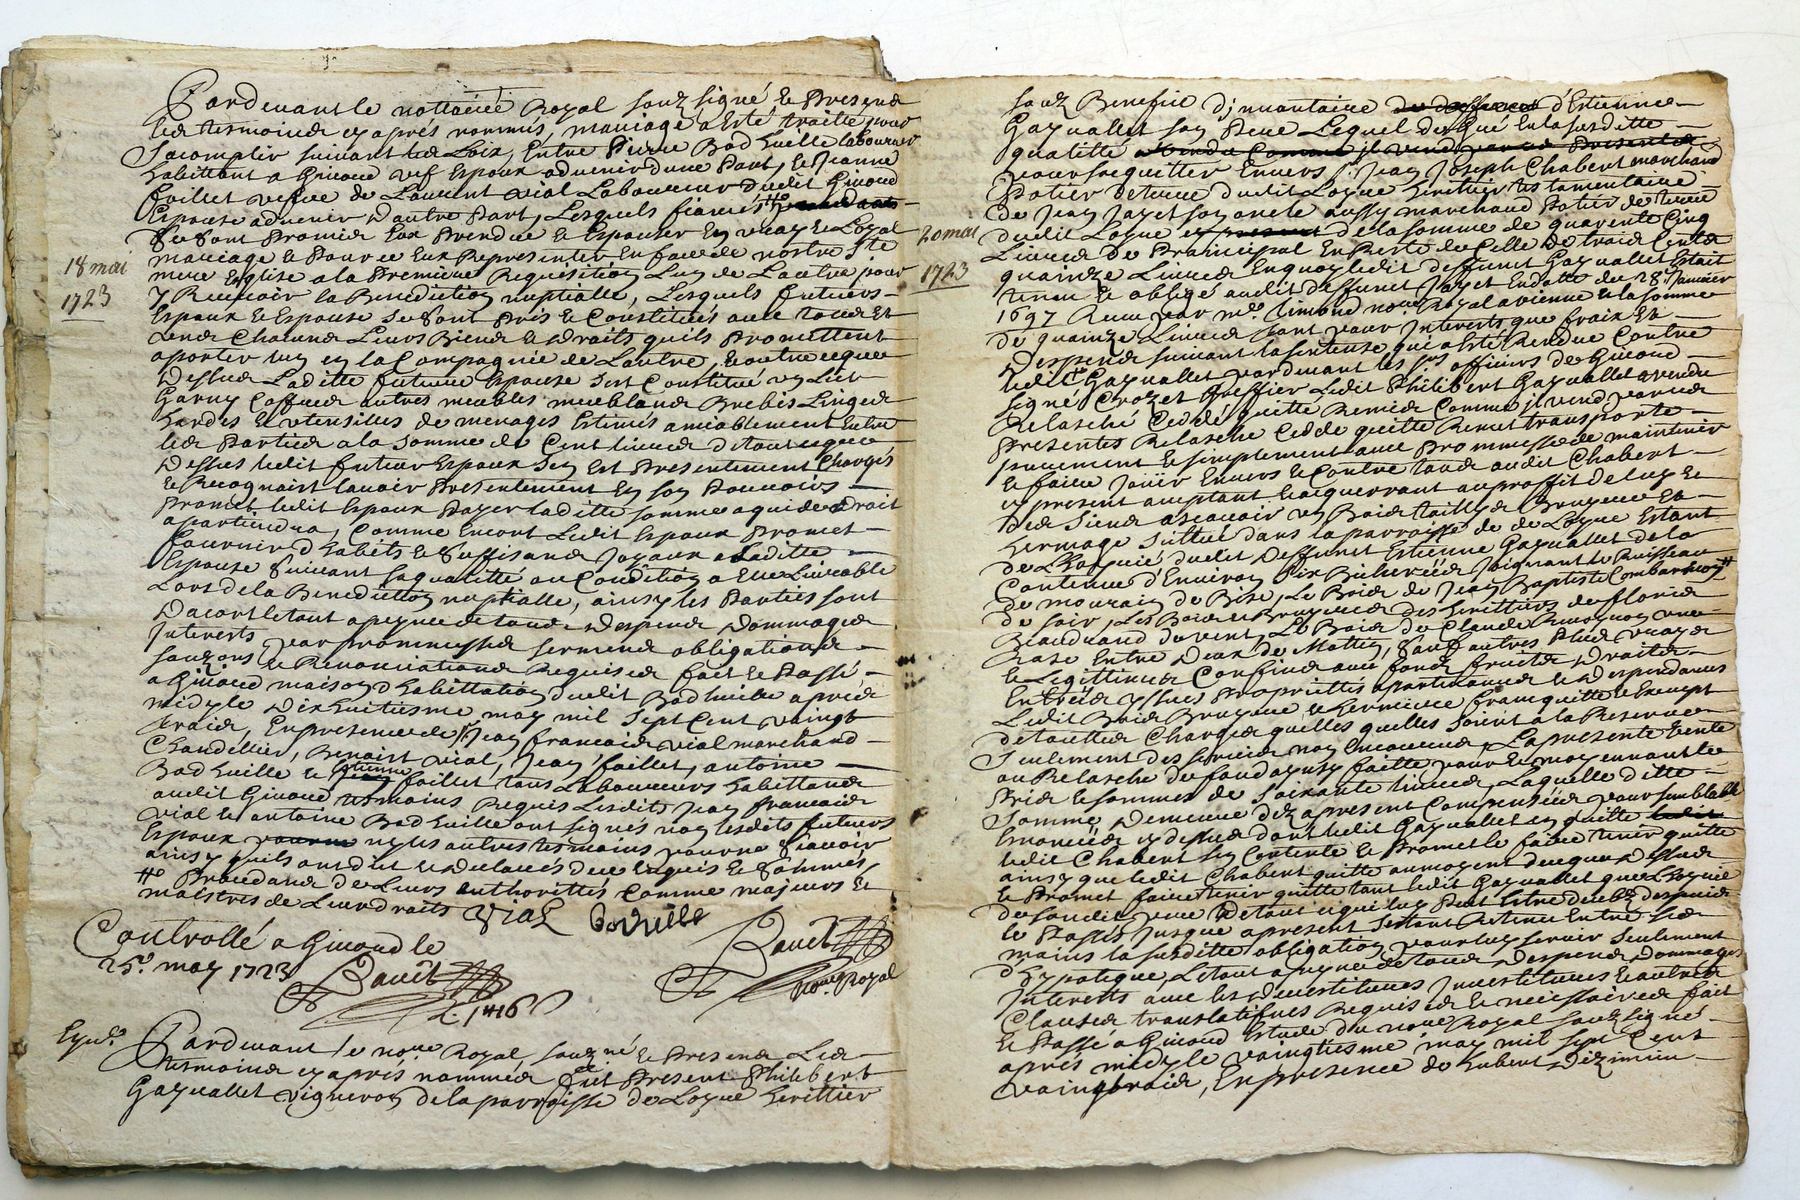 Pardevant le nottaire Royal souz signé & Presend
les tesmoinds cy aprés nommés, mariage a esté traitté pour
sacomplir suivant les Loix, Entre Pierre Badhuille laboureur
habittant a Givord vef Espoux advenir dune Part, & Jeanne
faillet vefve de Laurent vial Laboureur dudit Givord
Espouse advenir dautre Part, Lesquels fiancés #
Se Sont Promis Eux Prendre & Espouser En vray & Loyal
mariage & Pour ce Eux Representer En face de nostre Ste
mere Eglise a la Premiere Requisition Lun de Lautre pour
y Recevoir la Benediction nuptialle, Lesquels futeurs
Espoux & Espouse se Sont Pris & Constitués avec tous Et
uns Chacuns Leurs Biens & droits quils Promettent
aporter lun en la Compagnée de Lautre, & outre ceque
dessus Laditte future Espouse sest Constitué un Lict
Garny Coffres autres meubles meublans Brebis Linges
hardes & utensilles de menages Estimés amiablement Entre
les Parties a la somme de Cent livres de tout ceque
dessus ledit futeur Espoux sen Est Presentement Chargés
& Recognoist lavoir Presentement En son Pouvoirs
Promet ledit Espoux Payer laditte somme a qui de droit
apartiendra, Comme Encor Ledit Espoux Promet
fournir dhabits & suffisans Joyaux a Laditte
Espouse suivant sa qualitté ou Condition a Elle Livrable
Lors de la Benediction nuptialle, ainsy les Parties sont
dacort le tout a peyne de tous despends dommages
Interets par prommesses serments obligations
souzons & Renonciations Requises fait & Passé
a Givord maison dhabittation dudit Badhuille aprés
midy le Dix huitiesme may mil sept Cent vaingt
trois, En presence de sr Jean francois vial marchand
Chandellier, Benoist vial, Jean faillet, antoine
Badhuille & Etienne faillet tous Laboureurs habittans
audit Givord tesmoins Requis Lesdits Jean francois
vial & antoine Badhuille ont signés non lesdits futeurs
Espoux ny les autres tesmoins pour ne scavoir
ainsy quils ont dit & declarés de ce Enquis & sommés
# Procedans de Leurs authorittés Comme majeurs &
maistres de Leurs droits
Vial Badhuille
18 mai
1723
Controllé a Givord le
25e may 1723
Bauet
Bauet
nore Royal
Pardevant le nore Royal souzné & Presens Les
tesmoins cy aprés nommés fut Present Philibert
Gayuallet vigneron de la parroisse de Loyre herittier
20 mai
1723
souz Benefice djnvantaire d'Estienne
Gayuallet son Pere Lequel de gré En la susditte
qualitté
pour sacquitter Envers sr Jean Joseph Chabert marchand
Potier de terre dudit Loyre herittier testamentaire
de Jean Jayet son oncle aussy marchand Potier de terre
dudit Loyre de la somme de quarente Cinq
Livres de Praincipal En Reste de Celle de trois Cents
quainze Livres En quoy ledit deffunct Gayuallet Estait
tenu & obligé audit deffunct Jayet En datte du 28e Janvier
1697 Receu par me Simond nore Royal a vienne & la somme
de quainze Livres tant pour Interets que fraix Et
despends suivant la sentense qui a Esté Rendue Contre
ledit Gayuallet pardevant les srs officiers de Givord
signé Crozet Greffier Ledit Philibert Gayuallet a vendu
Relasché Ceddé quitté Remis Comme il vend par ces
Presentes Relasche Cedde quitte Remet transporte
purement & simplement avec Prommesse de maintenir
& faire Jouir Envers & Contre tous audit Chabert
cy present acceptant & acquerrant au proffit de luy &
des siens a scavoir un Bois taillis Bruyere Et
hermage scittué dans la parroisse de de Loyre Estant
de Lhoyrie dudit deffunct Estienne Gayuallet de la
Contenue d'Environ six Bicherées Joignant le Ruisseau
de mourain de Bise, Le Bois de Jean Baptiste Combar
de soir, Les Bois & Bruyeres des herittiers de floris
Beaudrand du vent, Le Bois de Claude une
Raze Entre deux de Mattin, sauf autres Plus vrays
& Legittimes Confins avec fonds fruits droits
Entrées yssues Proprietés apartenances & despendances
Ledit Bois Bruyere & hermage franq quitte & Exempt
de touttes Charges quelles quelles soient a la Reserve
seulement des servis non Encourus, La presente vente
ou Relasche de fonds ainsy faitte pour & moyennant le
Prix & somme de soixante livres, Laquelle ditte
somme demeure dez apresent Compensée pour semblable
Enoncée cy dessus dont ledit Gayuallet En quitte
ledit Chabert sen Contente & Promet le faire tenir quitte
ainsy que ledit Chabert quitte au moyent de ce que dessus
& Promet faire tenir quitte tant ledit Gayuallet que Lhoyrie
de sondit pere de tout ce qui luy Peut Estre deubz despuis
le Passés Jusque apresent sestant Retenu Entre ses
mains la susditte obligation pour luy servir seulement
dhypotique, Le tout a peyne de tous despends dommages
Interetts avec les devestitures Jnvestitures & autres
Clauses translatifves Requises & necessaires fait
& Passé a Givord Estude du nore Royal souz signé
aprés midy le vaingtiesme may mil sept Cent
vaingtrois, En presence de hubert Dizimieu